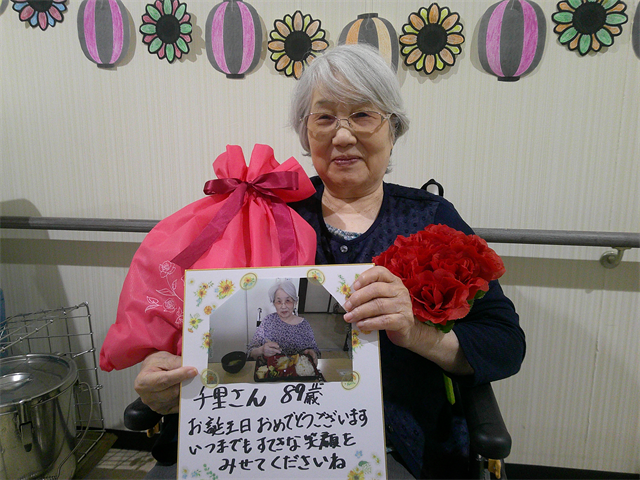 千里さん 89歳
お誕生日おめでとうございます
いつまでもすてきな笑顔を
みせてくださいね